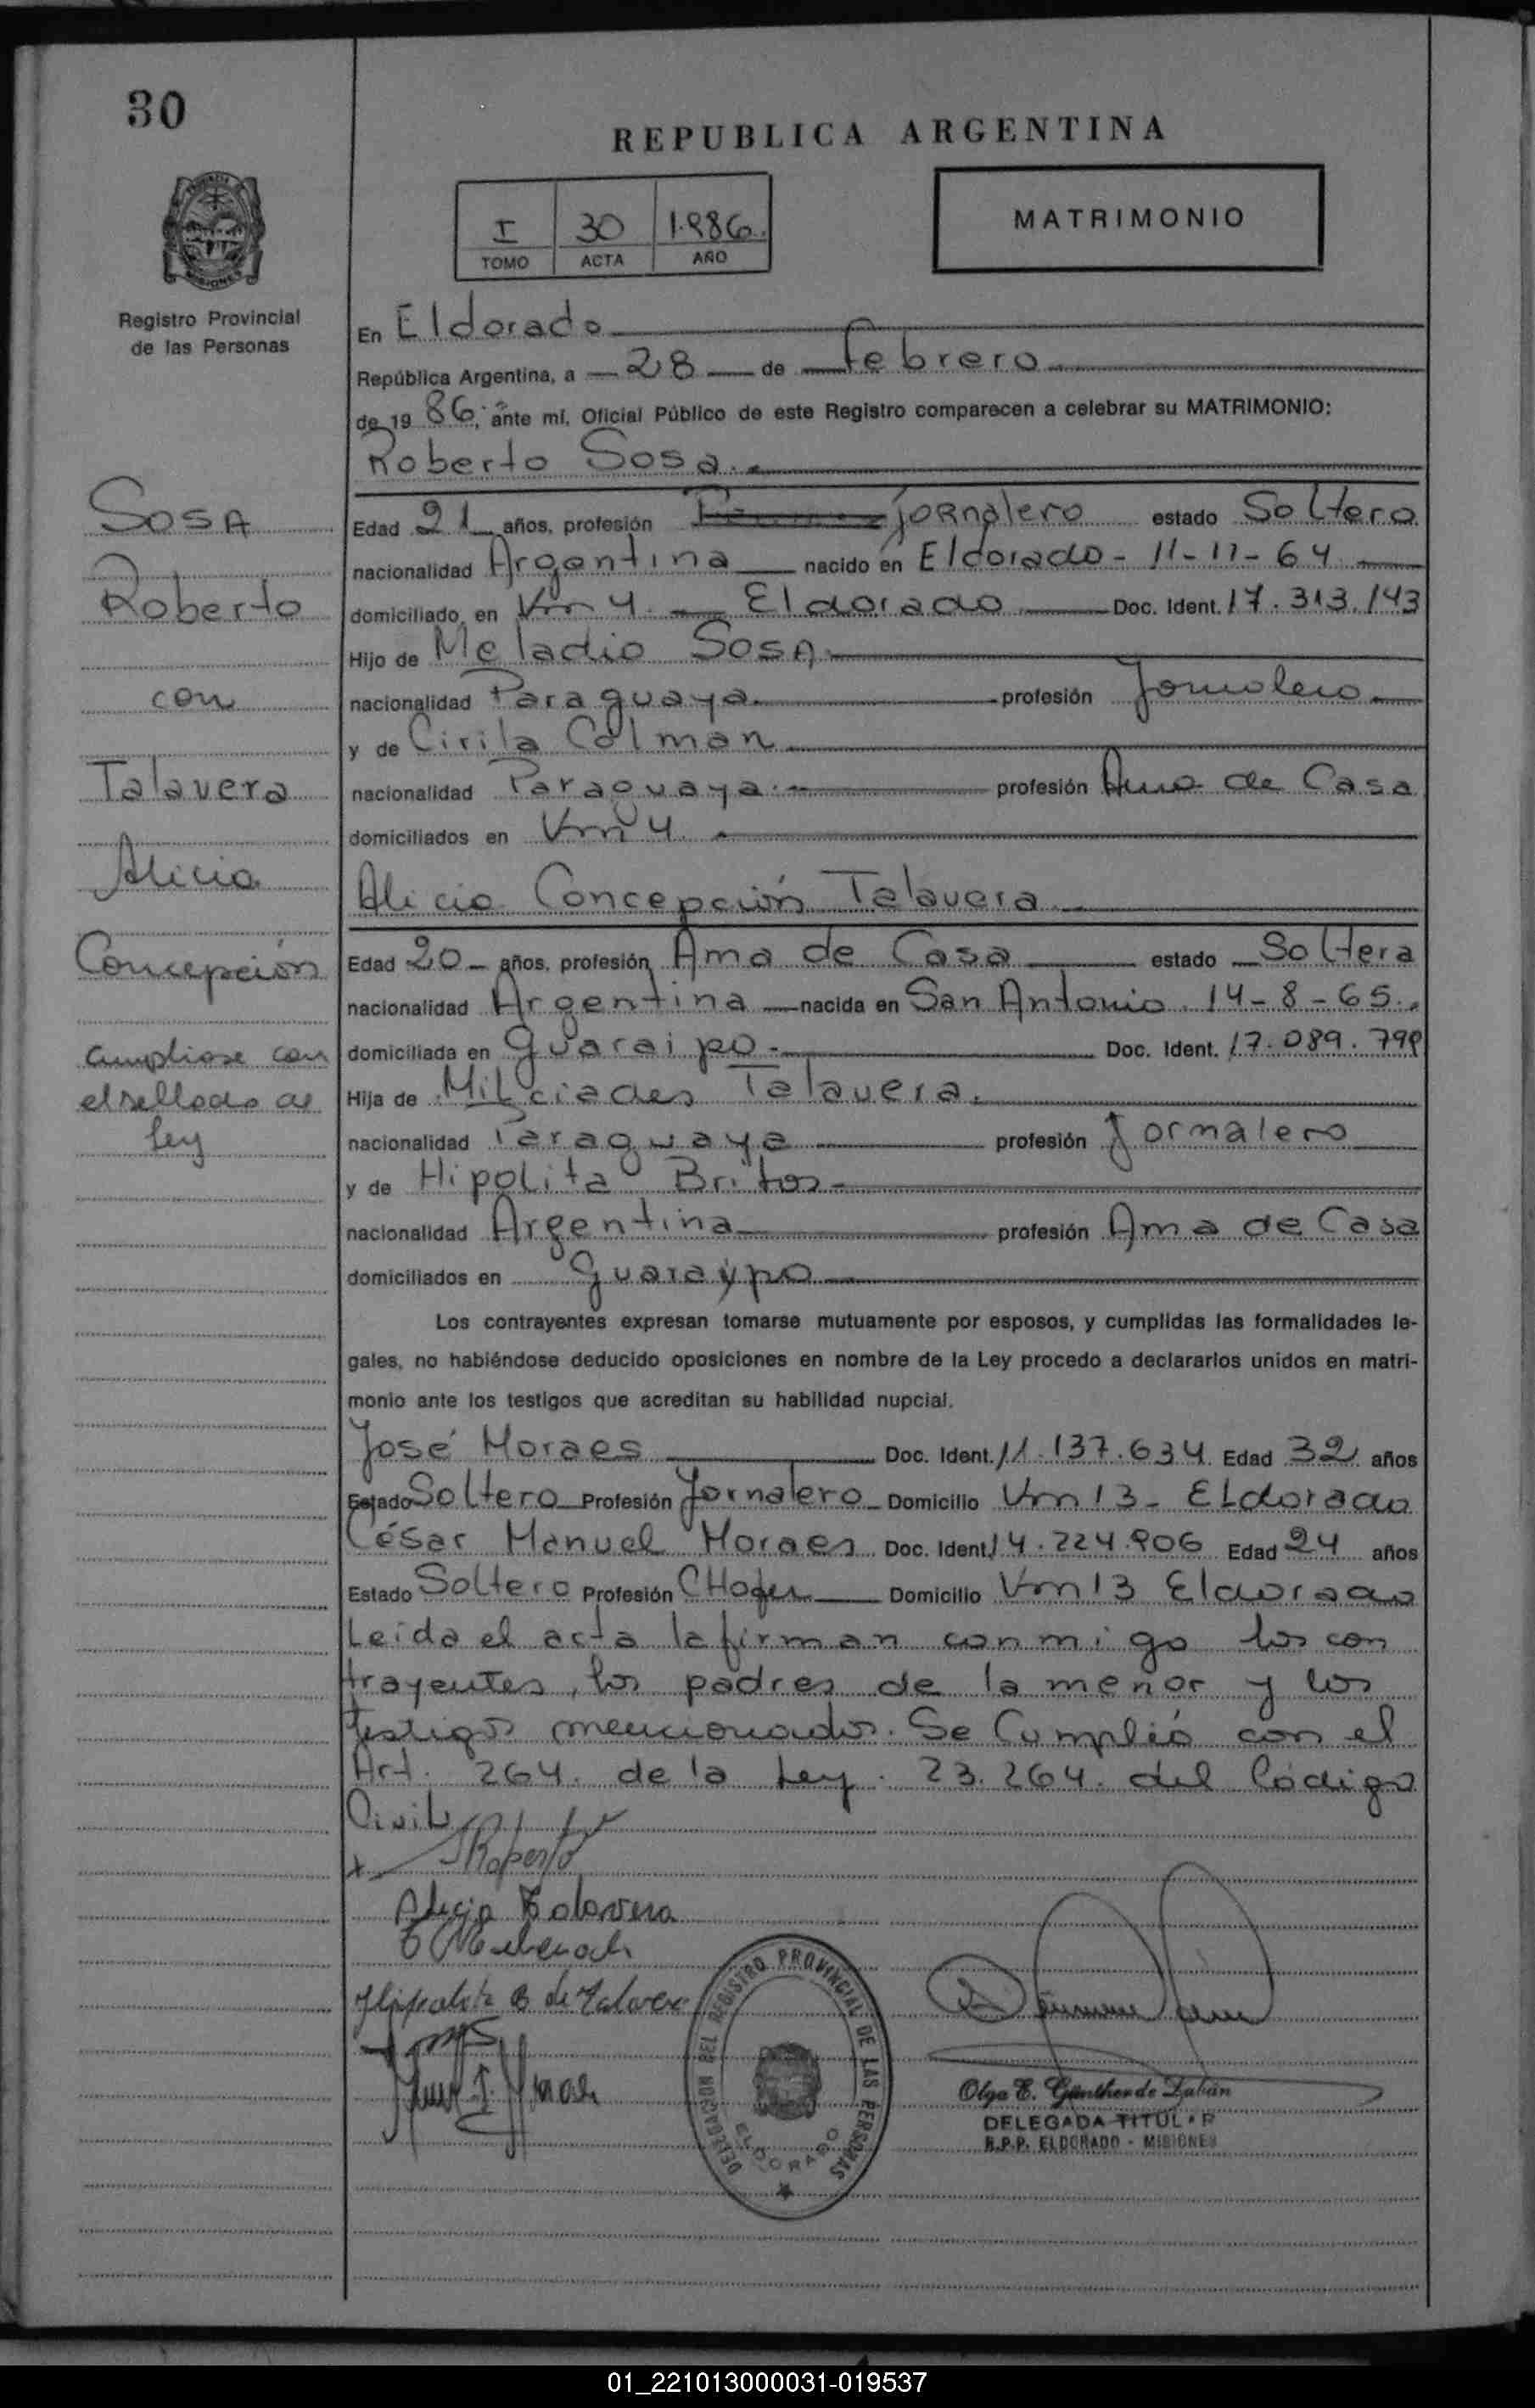 30
REPUBLICA ARGENTINA
I 30 1.986.
TOMO ACTA AÑO
MATRIMONIO
PROVINCIA DE MISIONES
Registro Provincial
de las Personas
En Eldorado
República Argentina, a 28 de febrero
de 19 86, ante mí, Oficial Público de este Registro comparecen a celebrar su MATRIMONIO:
Roberto Sosa.
Edad 21 años, profesión jornalero estado Soltero
nacionalidad Argentina nacido en Eldorado - 11-11-64
domiciliado en Km 4. Eldorado Doc. Ident. 17.313.143
Hijo de Meladio Sosa
nacionalidad Paraguaya. profesión Jornalero
y de Cirila Colman
nacionalidad Paraguaya. profesión Ama de Casa
domiciliados en Km 4.
Alicia Concepción Talavera
Edad 20 años, profesión Ama de Casa estado Soltera
nacionalidad Argentina nacida en San Antonio. 14-8-65.
domiciliada en Guaraipo. Doc. Ident. 17.089.799
Hija de Milciades Talavera.
nacionalidad Paraguaya profesión Jornalero
y de Hipolita Britos
nacionalidad Argentina profesión Ama de Casa
domiciliados en Guaraypo
Los contrayentes expresan tomarse mutuamente por esposos, y cumplidas las formalidades le-
gales, no habiéndose deducido oposiciones en nombre de la Ley procedo a declararlos unidos en matri-
monio ante los testigos que acreditan su habilidad nupcial.
José Moraes Doc. Ident. 11.137.634 Edad 32 años
Estado Soltero Profesión Jornalero Domicilio Km 13 - Eldorado
César Manuel Moraes Doc. Ident. 14.224.906 Edad 24 años
Estado Soltero Profesión CHofer Domicilio Km 13 Eldorado
Leída el acta la firman conmigo los con
trayentes, los padres de la menor y los
testigos mencionados. Se Cumplió con el
Art. 264. de la Ley. 23.264. del Código
Civil
Roberto
Alicia Talavera
Hipolita B de Talavera
DELEGACION DEL REGISTRO PROVINCIAL DE LAS PERSONAS
ELDORADO
Olga E. Günther de Dabán
DELEGADA TITULAR
R.P.P. ELDORADO - MISIONES
SOSA
Roberto
con
Talavera
Alicia
Concepción
Cumpliose con
el sellado de
Ley
01_221013000031-019537